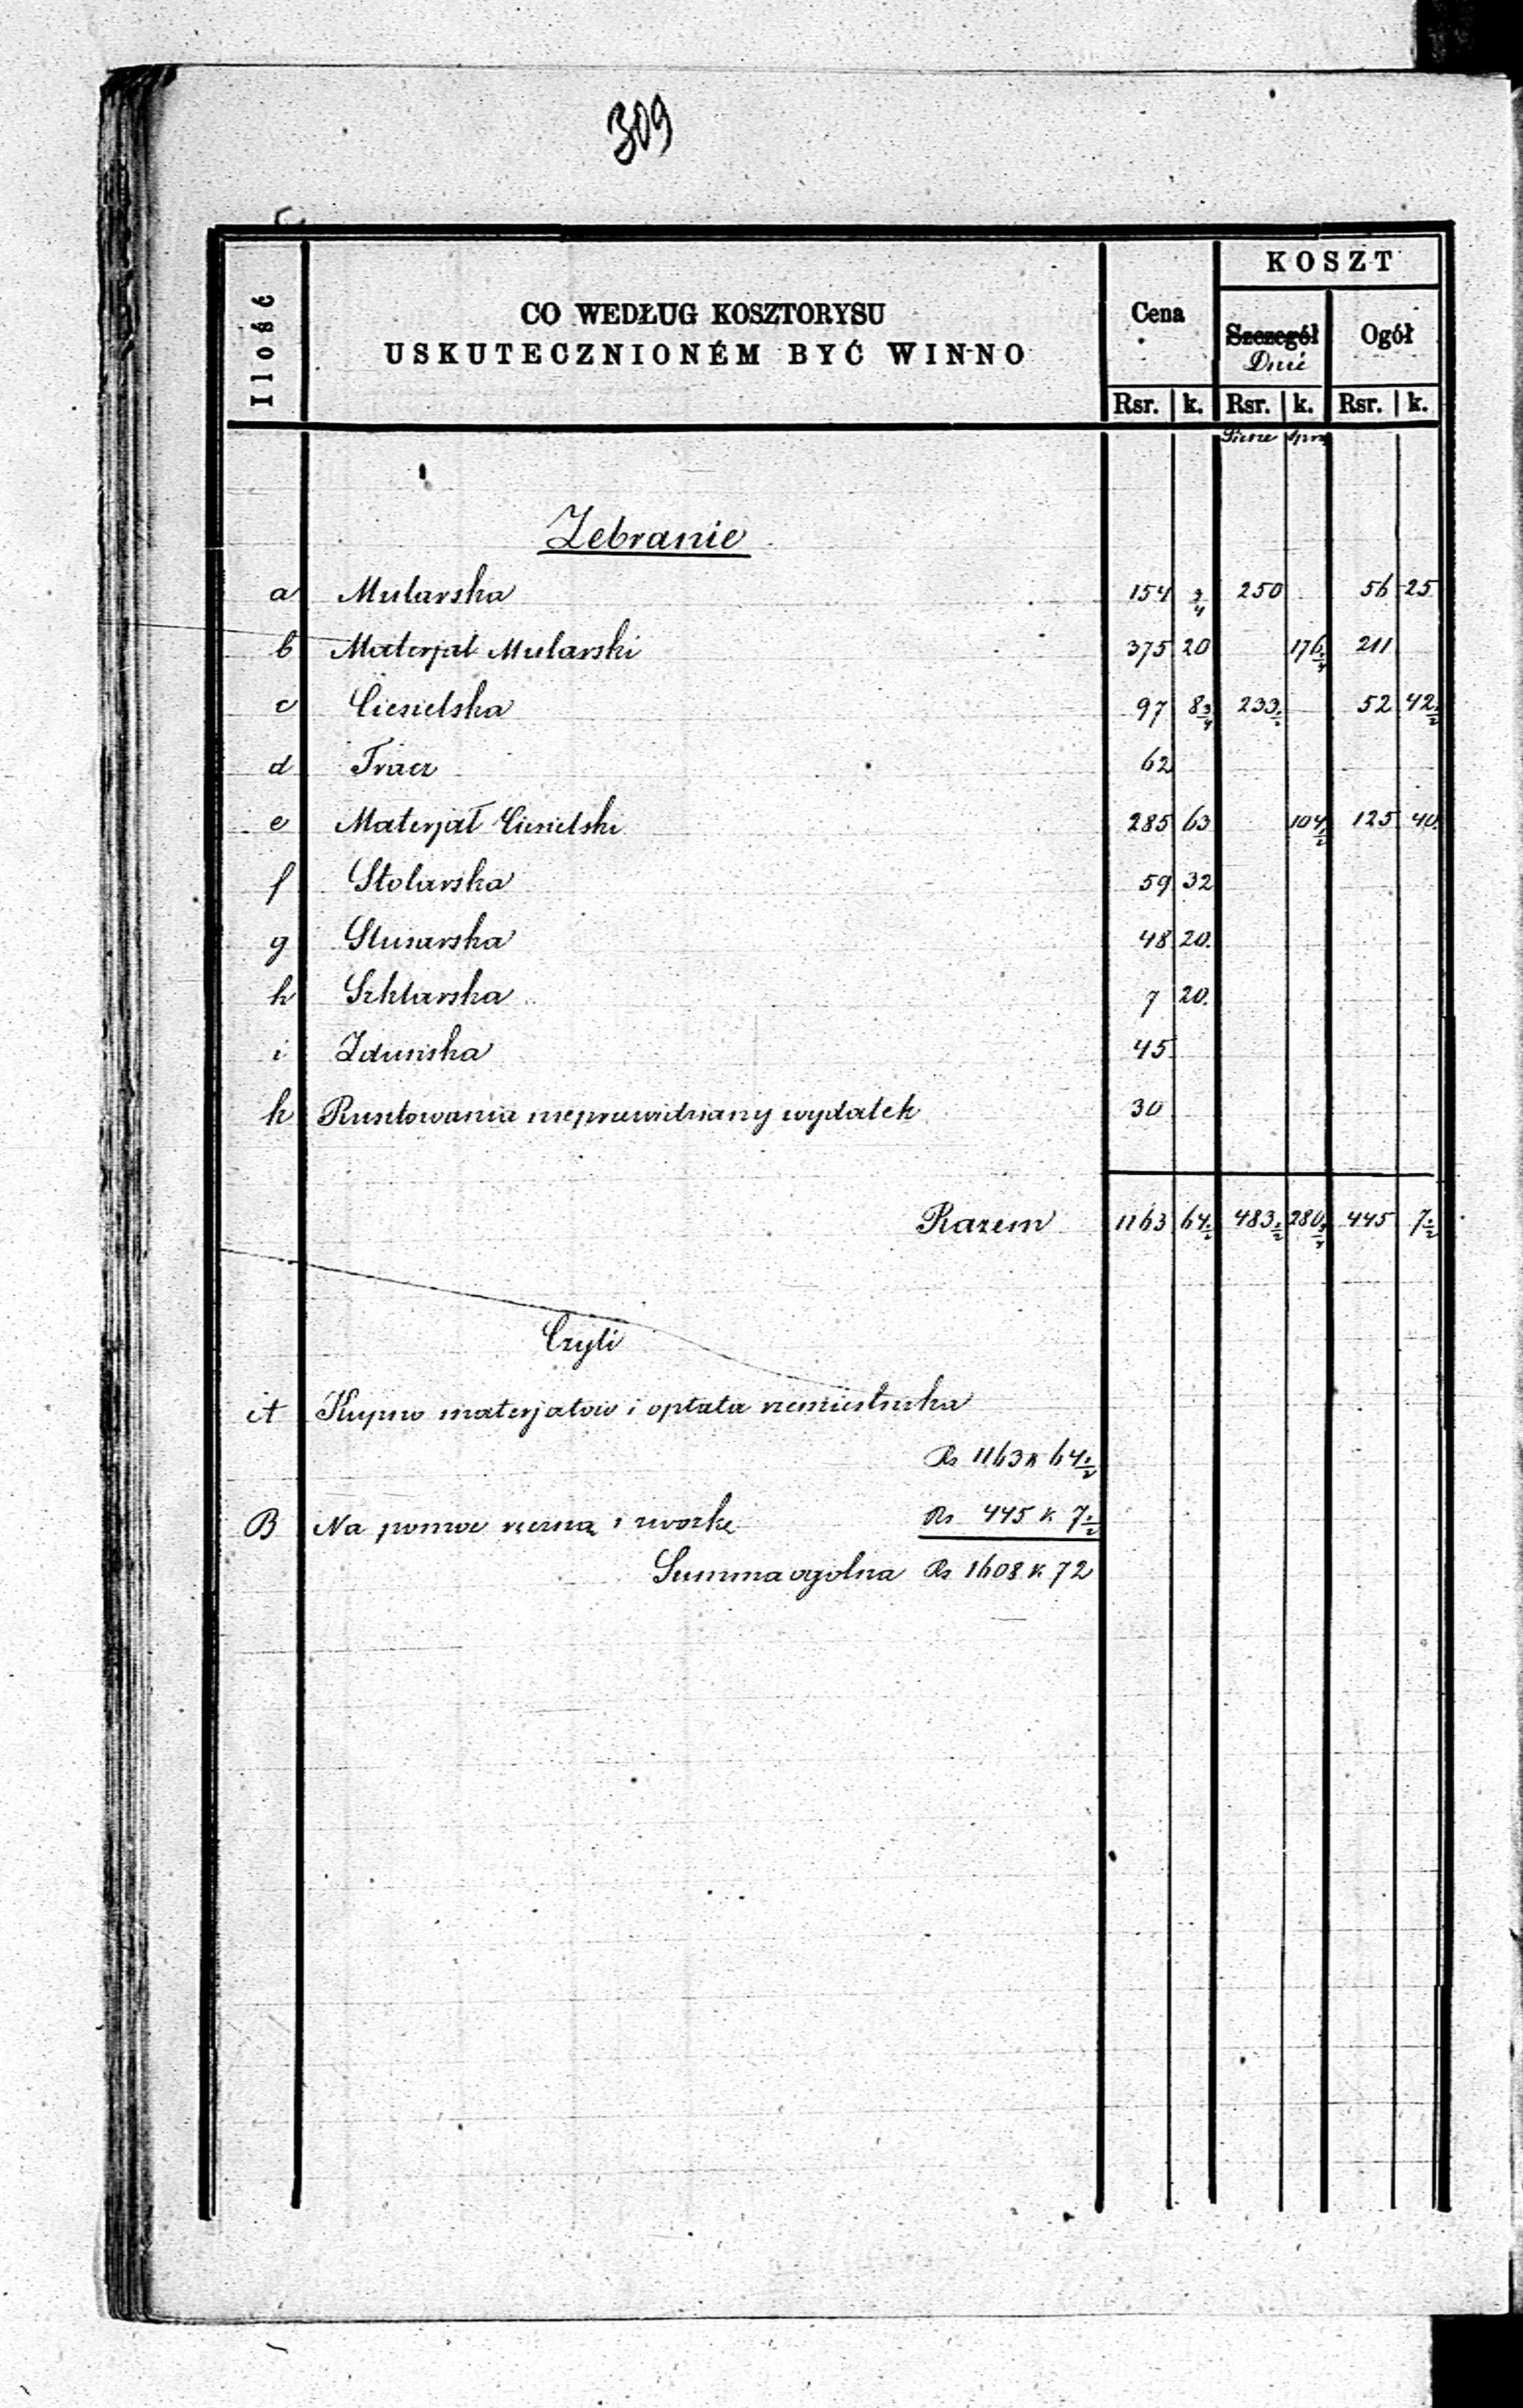 309
Ilość
CO WEDŁUG KOSZTORYSU
USKUTECZNIONÉM BYĆ WINNO
Cena
KOSZT
Szczegół Ogół
Dnié
Rsr. k. Rsr. k. Rsr. k.
Piesze
Zebranie
a Mularska 154 3/4 250 56 25
b Materjał Mularski 375 20 176 1/4 211
c Ciesielska 97 8 3/4 233 1/2 52 42 1/2
d Tracz 62
e Materjał Ciesielski 285 63 104 1/2 125 40
f Stolarska 59 32
g Slusarska 48 20
h Szklarska 7 20
i Zduńska 45
k Rusztowania nieprzewidziany wydatek 30
Razem 1163 64 1/2 483 1/2 280 3/4 445 7 1/2
Czyli
A Kupno materjałów i opłata rzemieslnika
Rs 1163 k 64 1/2
B Na pomoc ręczną i zwózkę Rs 445 k 7 1/2
Summa ogolna Rs 1608 k 72